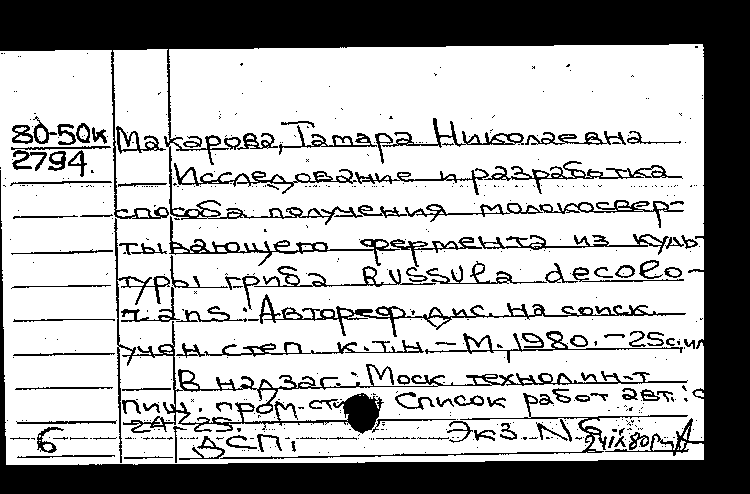 80-50к Макарова, Тамара Николаевна
2794. Исследование и разработка
способа получения молокосвер-
тывающего фермента из куль-
туры гриба Russula decolo-
rans: Автореф. дис. на соиск.
учен. степ. к.т.н. - М., 1980. - 25с, ил
В надзаг.: Моск. технол. ин-т
пищ. пром-сти Список работ авт.: с
24-25.
6 ДСП, Экз. N 6